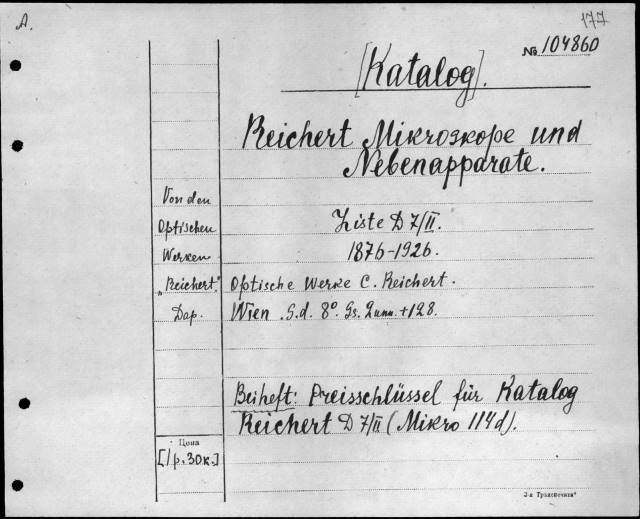 A.
177
№ 104860
[Katalog].
Reichert Mikroskope und
Nebenapparate.
Von den
Optischen
Werken
„Reichert."
Дар.
Liste D 7/II.
1876-1926.
Optische Werke C. Reichert.
Wien. S.d. 8°. Gs. 2 unn. + 128.
Beiheft: Preisschlüssel für Katalog
Reichert D 7/II (Mikro 114d).
Цена
[1 р. 30к.]